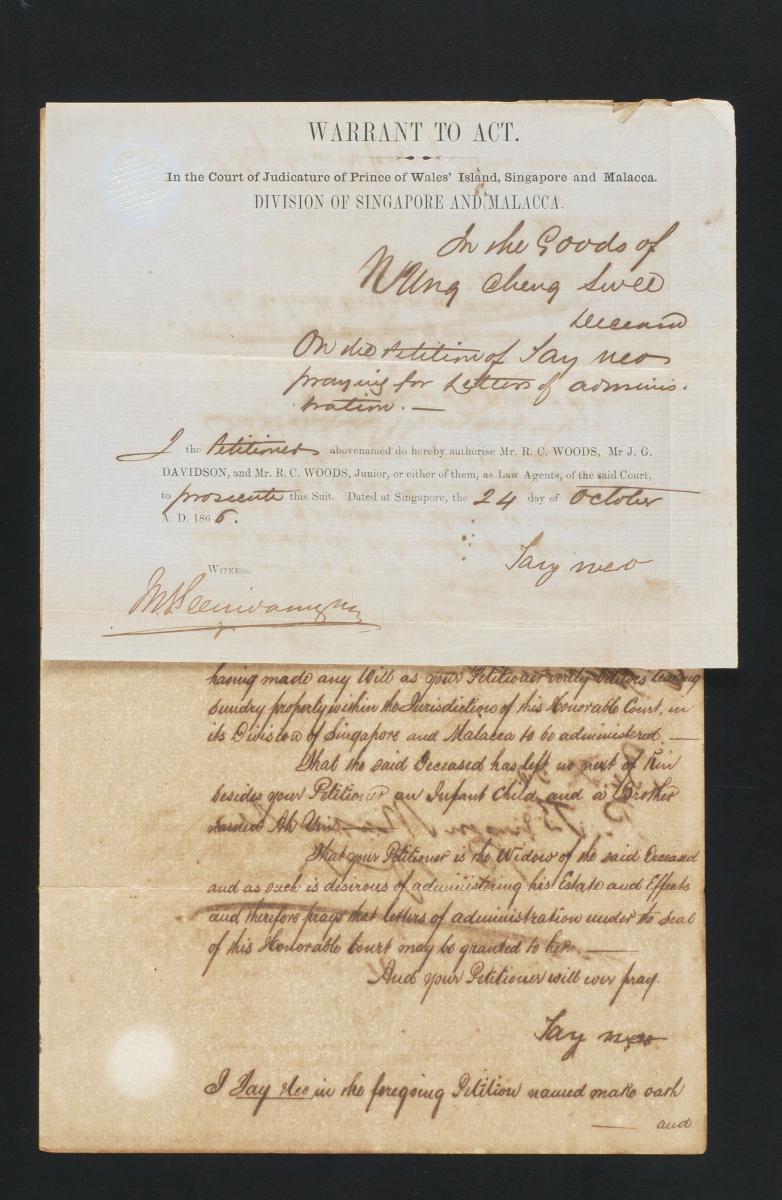 WARRANT TO ACT.
In the Court of Judicature of Prince of Wales' Island, Singapore and Malacca.
DIVISION OF SINGAPORE AND MALACCA.
In the Goods of
Cheng Swee
Deceased
On the Petition of Tay neo
praying for Letters of adminis-
tration. —
I the Petitioner abovenamed do hereby authorise Mr. R. C. WOODS, Mr J. G.
DAVIDSON, and Mr. R. C. WOODS, Junior, or either of them, as Law Agents, of the said Court,
to prosecute this Suit. Dated at Singapore, the 24 day of October
A. D. 1866.
Tay neo
WITNESS.
having made any Will as your Petitioner verily believes leaving
sundry property within the Jurisdiction of this Honorable Court, in
its Division of Singapore and Malacca to be administered. —
That the said Deceased has left no next of Kin
besides your Petitioner an Infant Child and a Brother
named Ah
That your Petitioner is the Widow of the said Deceased
and as such is desirous of administering his Estate and Effects
and therefore prays that letters of administration under the seal
of this Honorable Court may be granted to her. —
And your Petitioner will ever pray.
Tay neo
I Tay Neo in the foregoing Petition named make oath
— and